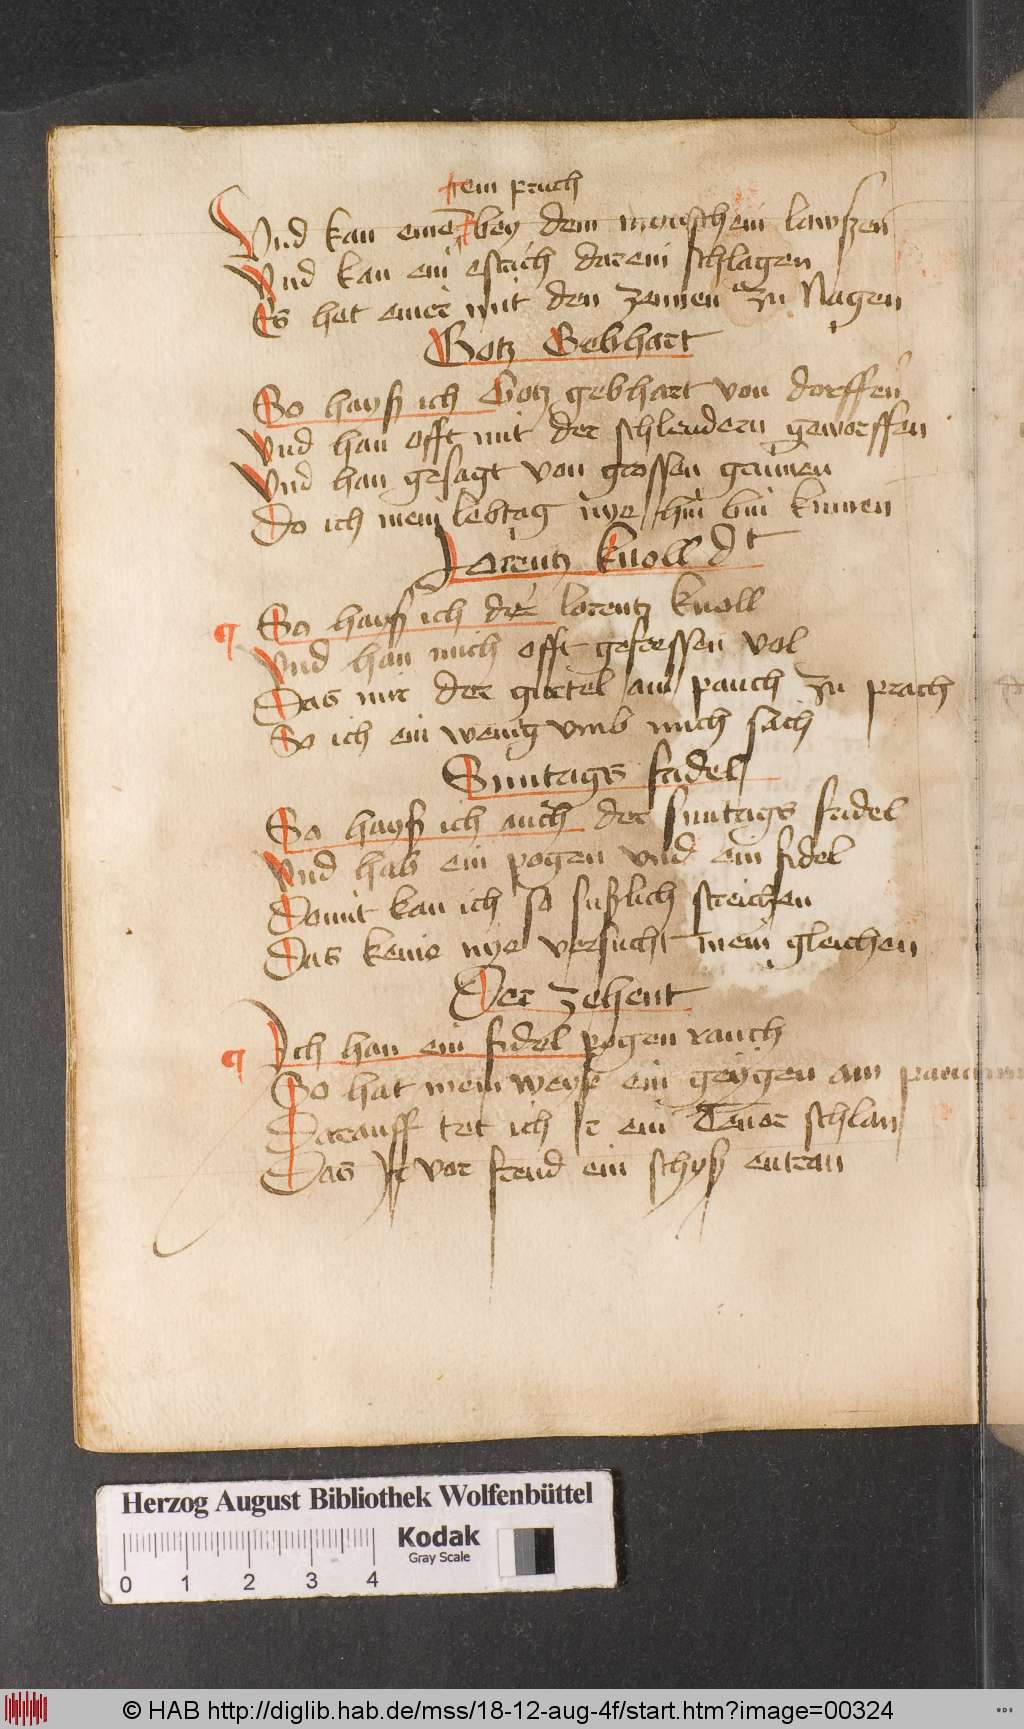 ein pruch
Vnd kan eine bey dem monschein lawszen
Vnd kan ein estrich darein schlagen
Es het einer mit den zennen zu Nagen
Gotz Gebhart
So haysz ich Gotz gebhart von dorffen
Vnd han offt mit der schlendern geworffen
Vnd han gesagt von grossen grimen
Do ich mein lebtag nye hin bin kumen
Lorentz knoll dt
So haysz ich der lorentz knoll
Vnd han mich offt gefressen vol
Das mir der gurtel am pauch zu prach
So ich ein wenig vmb mich sach
Suntags fidel
So haysz ich auch der suntags fidel
Vnd hab ein pogen vnd ein fidel
Domit kan ich so suszlich streichen
Das keine nye versucht mein gleichen
Der zehent
Ich han ein fidel pogen rauch
So hat mein weyp ein geygen am
Darauff tet ich Ir ein Tenor schlan
Das Ir vor freud ein schysz entran
Herzog August Bibliothek Wolfenbüttel
Kodak
Gray Scale
0 1 2 3 4
© HAB http://diglib.hab.de/mss/18-12-aug-4f/start.htm?image=00324